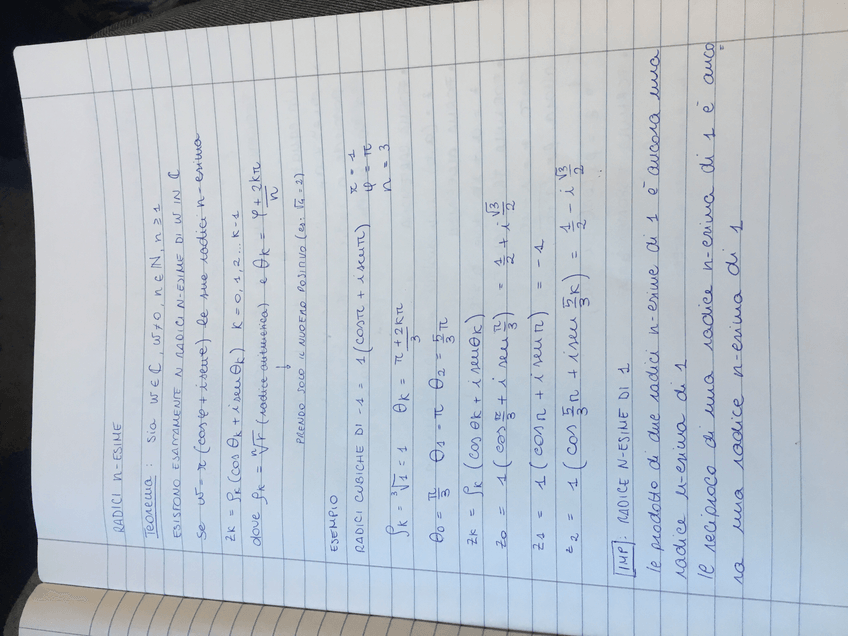 RADICI n-ESIME
Teorema: sia w ∈ ℂ, w≠0, n ∈ ℕ, n ≥ 1
ESISTONO ESATTAMENTE N RADICI N-ESIME DI W IN ℂ
Se w = r (cosφ + i senφ) le sue radici n-esima
zk = ρk (cos θk + i sen θk) k = 0, 1, 2... k-1
dove ρk = ⁿ√r (radice aritmetica) e θk = (φ + 2kπ)/n
↓
PRENDO SOLO IL NUMERO POSITIVO (es: √4 = 2)
ESEMPIO
RADICI CUBICHE DI -1 = 1 (cosπ + i senπ) r = 1
φ = π
n = 3
ρk = ³√1 = 1 θk = (π + 2kπ)/3
θ0 = π/3 θ1 = π θ2 = 5/3 π
zk = ρk (cos θk + i sen θk)
z0 = 1 (cos π/3 + i sen π/3) = 1/2 + i √3/2
z1 = 1 (cos π + i sen π) = -1
z2 = 1 (cos 5/3 π + i sen 5/3 π) = 1/2 - i √3/2
IMP. RADICE N-ESIME DI 1
il prodotto di due radici n-esime di 1 è ancora una
radice n-esima di 1
il reciproco di una radice n-esima di 1 è anco
ra una radice n-esima di 1